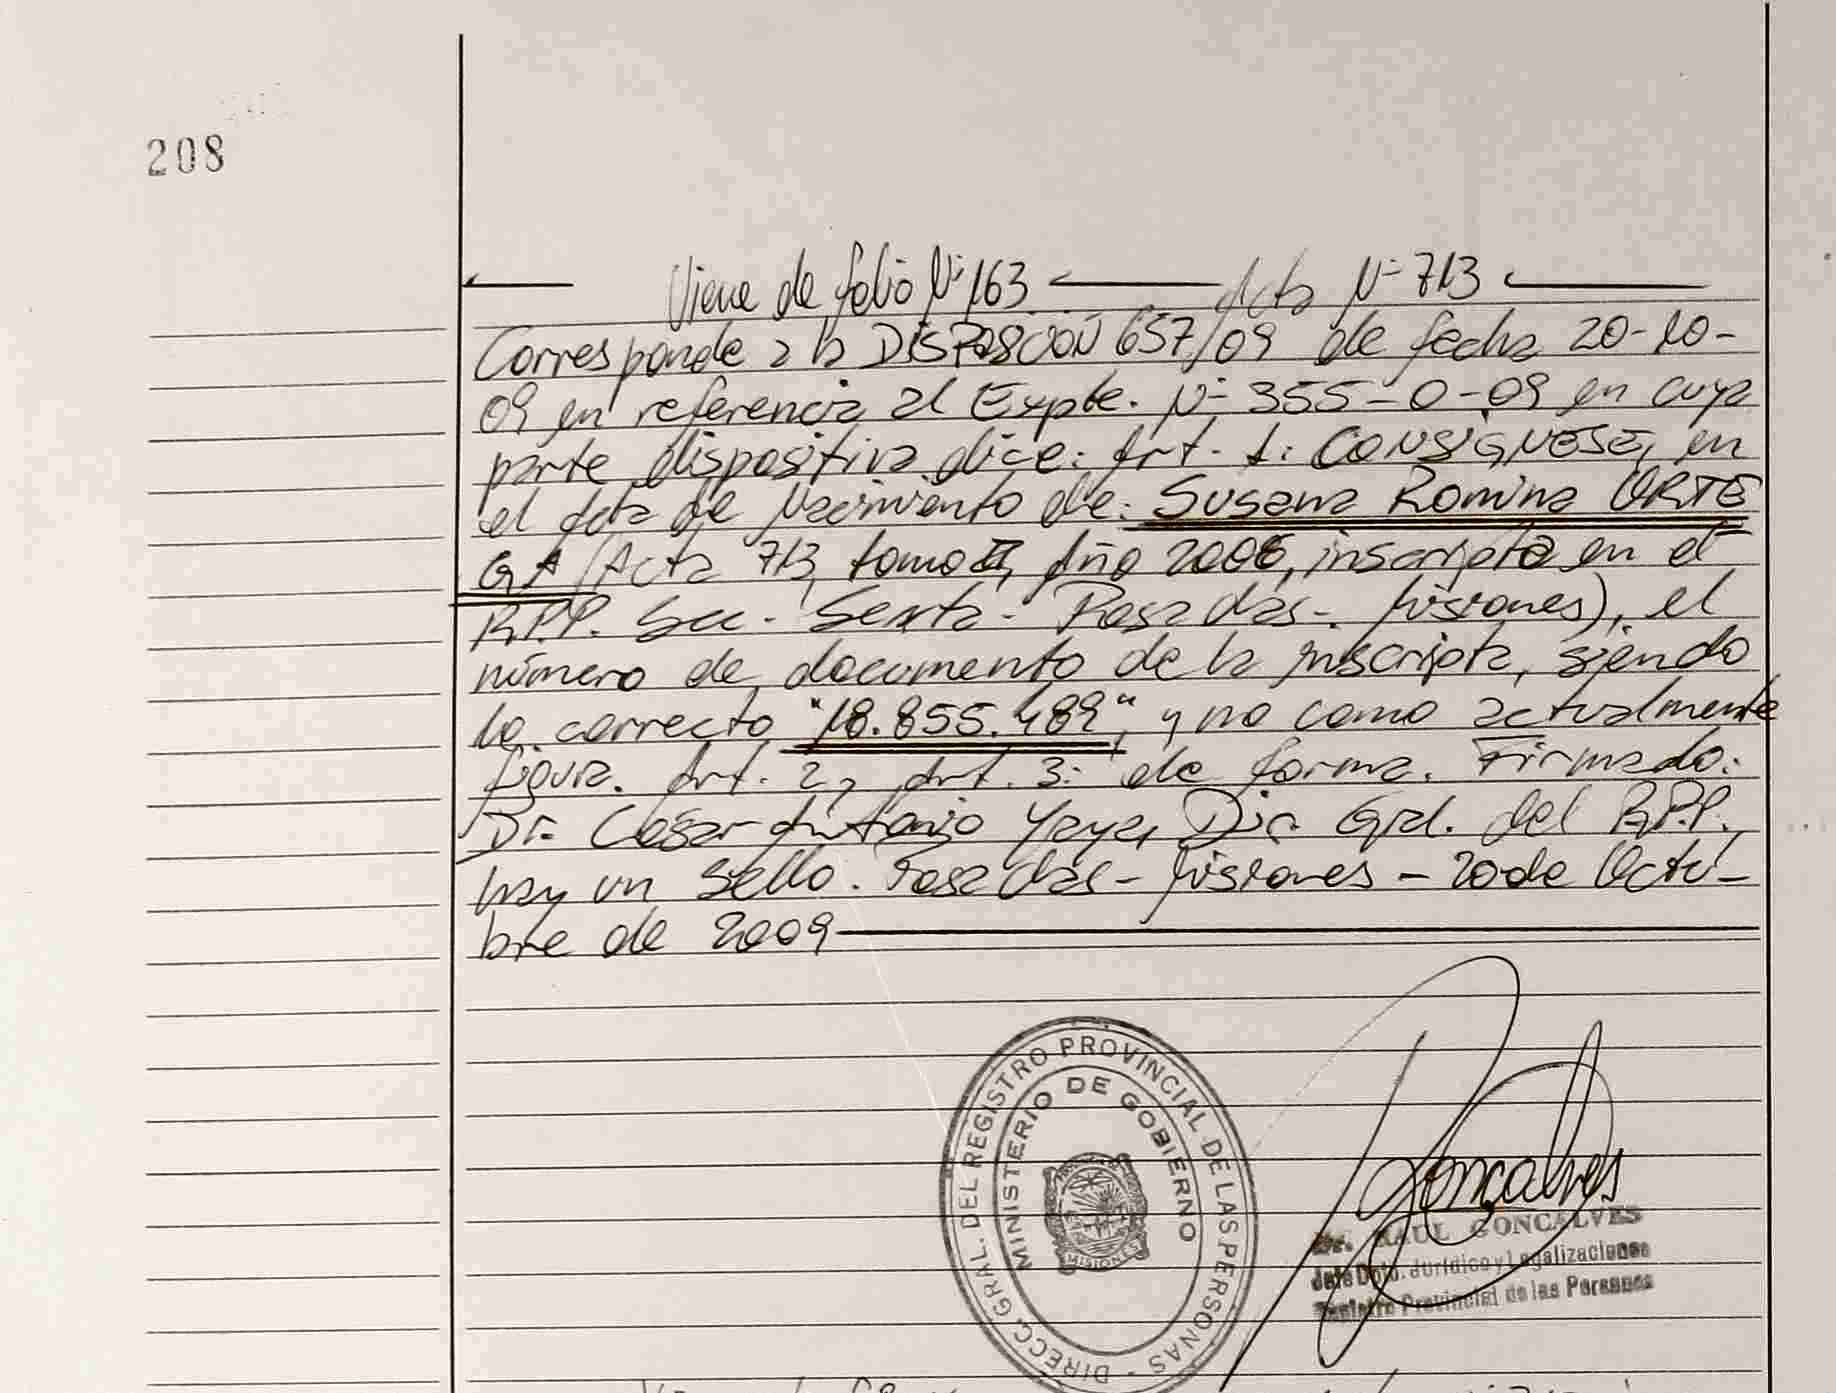 208
Viene de folio Nº 163 — Acta Nº 713
Corresponde a la DISPOSICION 657/09 de fecha 20-10-
09 en referencia al Expte. Nº 355-0-09 en cuya
parte dispositiva dice: Art. 1: CONSIGNESE, en
el Acta de Nacimiento de: Susana Romina ORTE
GA (Acta 713, tomo II, Año 2006, inscripta en el
R.P.P. Sec. Sexta - Posadas - Misiones), el
número de documento de la inscripta, siendo
lo correcto "18.855.489", y no como actualmente
figura. Art. 2, Art. 3: de forma. Firmado:
Dr. Cesar Antonio Yaya, Dir. Gral. del R.P.P.,
hay un sello. Posadas - Misiones - 20 de Octu-
bre de 2009
DIRECC. GRAL. DEL REGISTRO PROVINCIAL DE LAS PERSONAS -
MINISTERIO DE GOBIERNO
MISIONES
Goncalves
Dr. RAUL GONCALVES
Jefe Dpto. Jurídico y Legalizaciones
Registro Provincial de las Personas